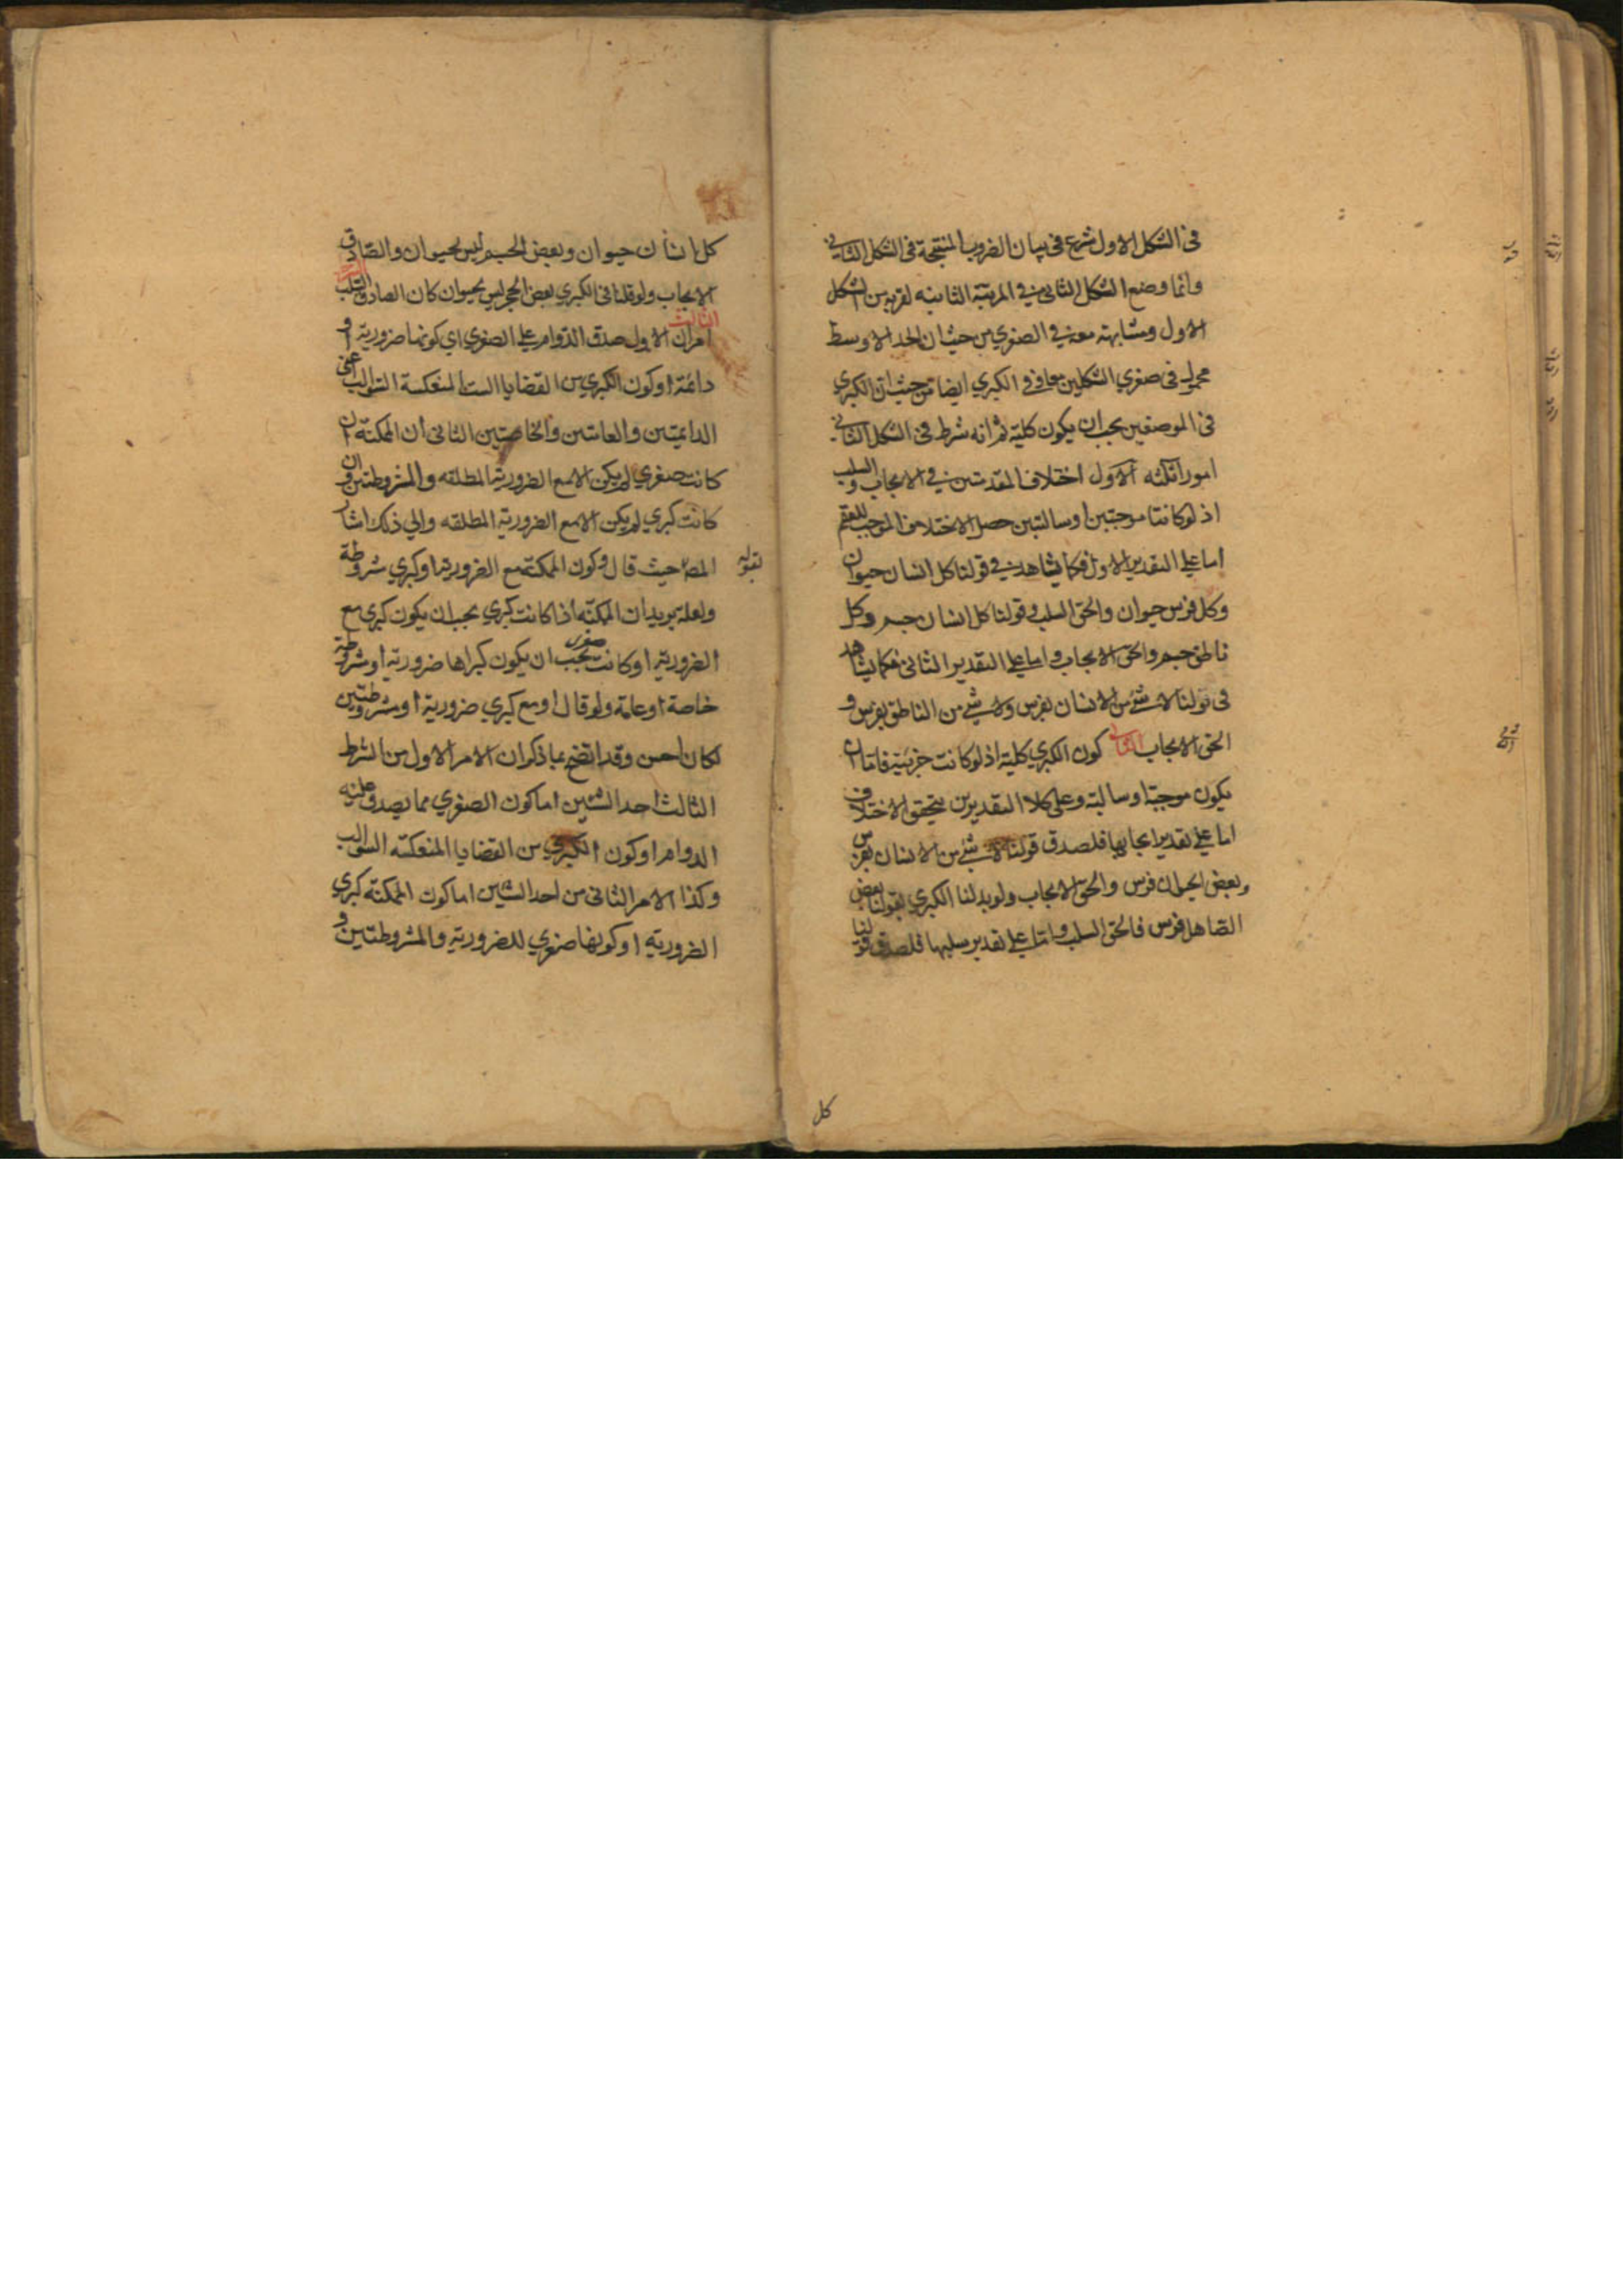 فى الشكل الاول شرع فى بيان الضروب المنتجة فى الشكل الثانى
وانما وضع الشكل الثانى فى المرتبة الثانيه لقربه من الشكل
الاول ومشابهته معه فى الصغرى من حيث ان الحد الاوسط
محمول فى صغرى الشكلين معا وفى الكبرى ايضا من حيث ان الكبرى
فى الموضعين يجب ان يكون كلية ثم انه شرط فى الشكل الثانى
امور ثلثه الاول اختلاف المقدمتين فى الايجاب والسلب
اذ لو كانتا موجبتين او سالبتين حصل الاختلاف الموجب للعقم
اما على التقدير الاول فكما يشاهد فى قولنا كل انسان حيوان
وكل فرس حيوان والحق السلب وقولنا كل انسان جسم وكل
ناطق جسم والحق الايجاب واما على التقدير الثانى فكما يشاهد
فى قولنا لا شئ من الانسان بفرس ولا شئ من الناطق بفرس و
الحق الايجاب الثانى كون الكبرى كلية اذ لو كانت جزئية فاما ان
يكون موجبة او سالبة وعلى كلا التقديرين يتحقق الاختلاف
اما على تقدير ايجابها فلصدق قولنا لا شئ من الانسان بفرس
وبعض الحيوان فرس والحق الايجاب ولو بدلنا الكبرى بقولنا بعض
الصاهل فرس فالحق السلب واما على تقدير سلبها فلصدق قولنا
كل
كل انسان حيوان وبعض الجسم ليس بحيوان والصادق
الايجاب ولو قلنا فى الكبرى بعض الحجر ليس بحيوان كان الصادق السلب
الثالث
امران الاول صدق الدوام على الصغرى اى كونها ضرورية او
دائمة او كون الكبرى من القضايا الست المنعكسة السوالب اعنى
الدائمتين والعامتين والخاصتين الثانى ان الممكنة ان
كانت صغرى لم يكن الا مع الضرورية المطلقه والمشروطتين وان
كانت كبرى لم يكن الا مع الضرورية المطلقه والى ذلك اشار
بقوله
المص حيث قال وكون الممكنة مع الضرورية او كبرى مشروطة
ولعله يريد ان الممكنة اذا كانت كبرى يجب ان يكون كبرى مع
الضرورية او كانت صغرى يجب ان يكون كبراها ضرورية او مشروطة
خاصة او عامة ولو قال او مع كبرى ضرورية او مشروطتين
لكان احسن وقد اتضح بما ذكر ان الامر الاول من الشرط
الثالث احد الشيئين اما كون الصغرى مما يصدق عليه
الدوام او كون الكبرى من القضايا المنعكسة السوالب
وكذا الامر الثانى من احد الشيئين اما كون الممكنة كبرى
الضرورية او كونها صغرى للضرورية والمشروطتين و